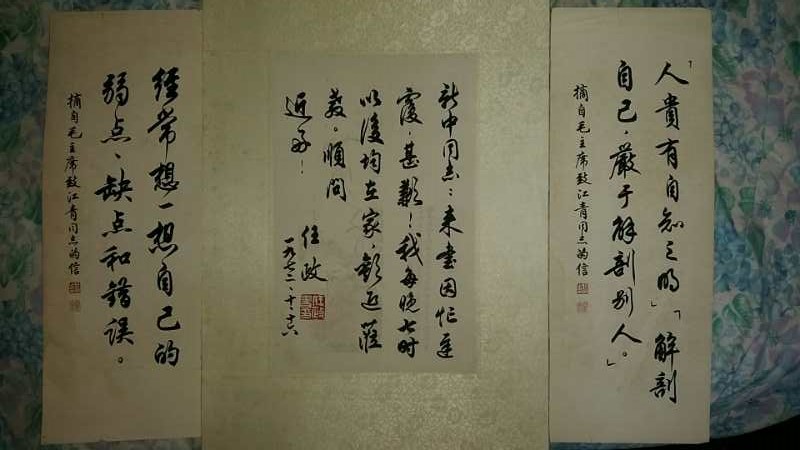 「人貴有自知之明」「解剖
自己，嚴于解剖別人。」
摘自毛主席致江青同志的信
新中同志：来書因忙遲
覆，甚歉！我每晚七时
以後均在家，歡迎蒞
教。順問
近好！
任政
一九七二、十、十六
經常想一想自己的
弱点、缺点和錯误。
摘自毛主席致江青同志的信